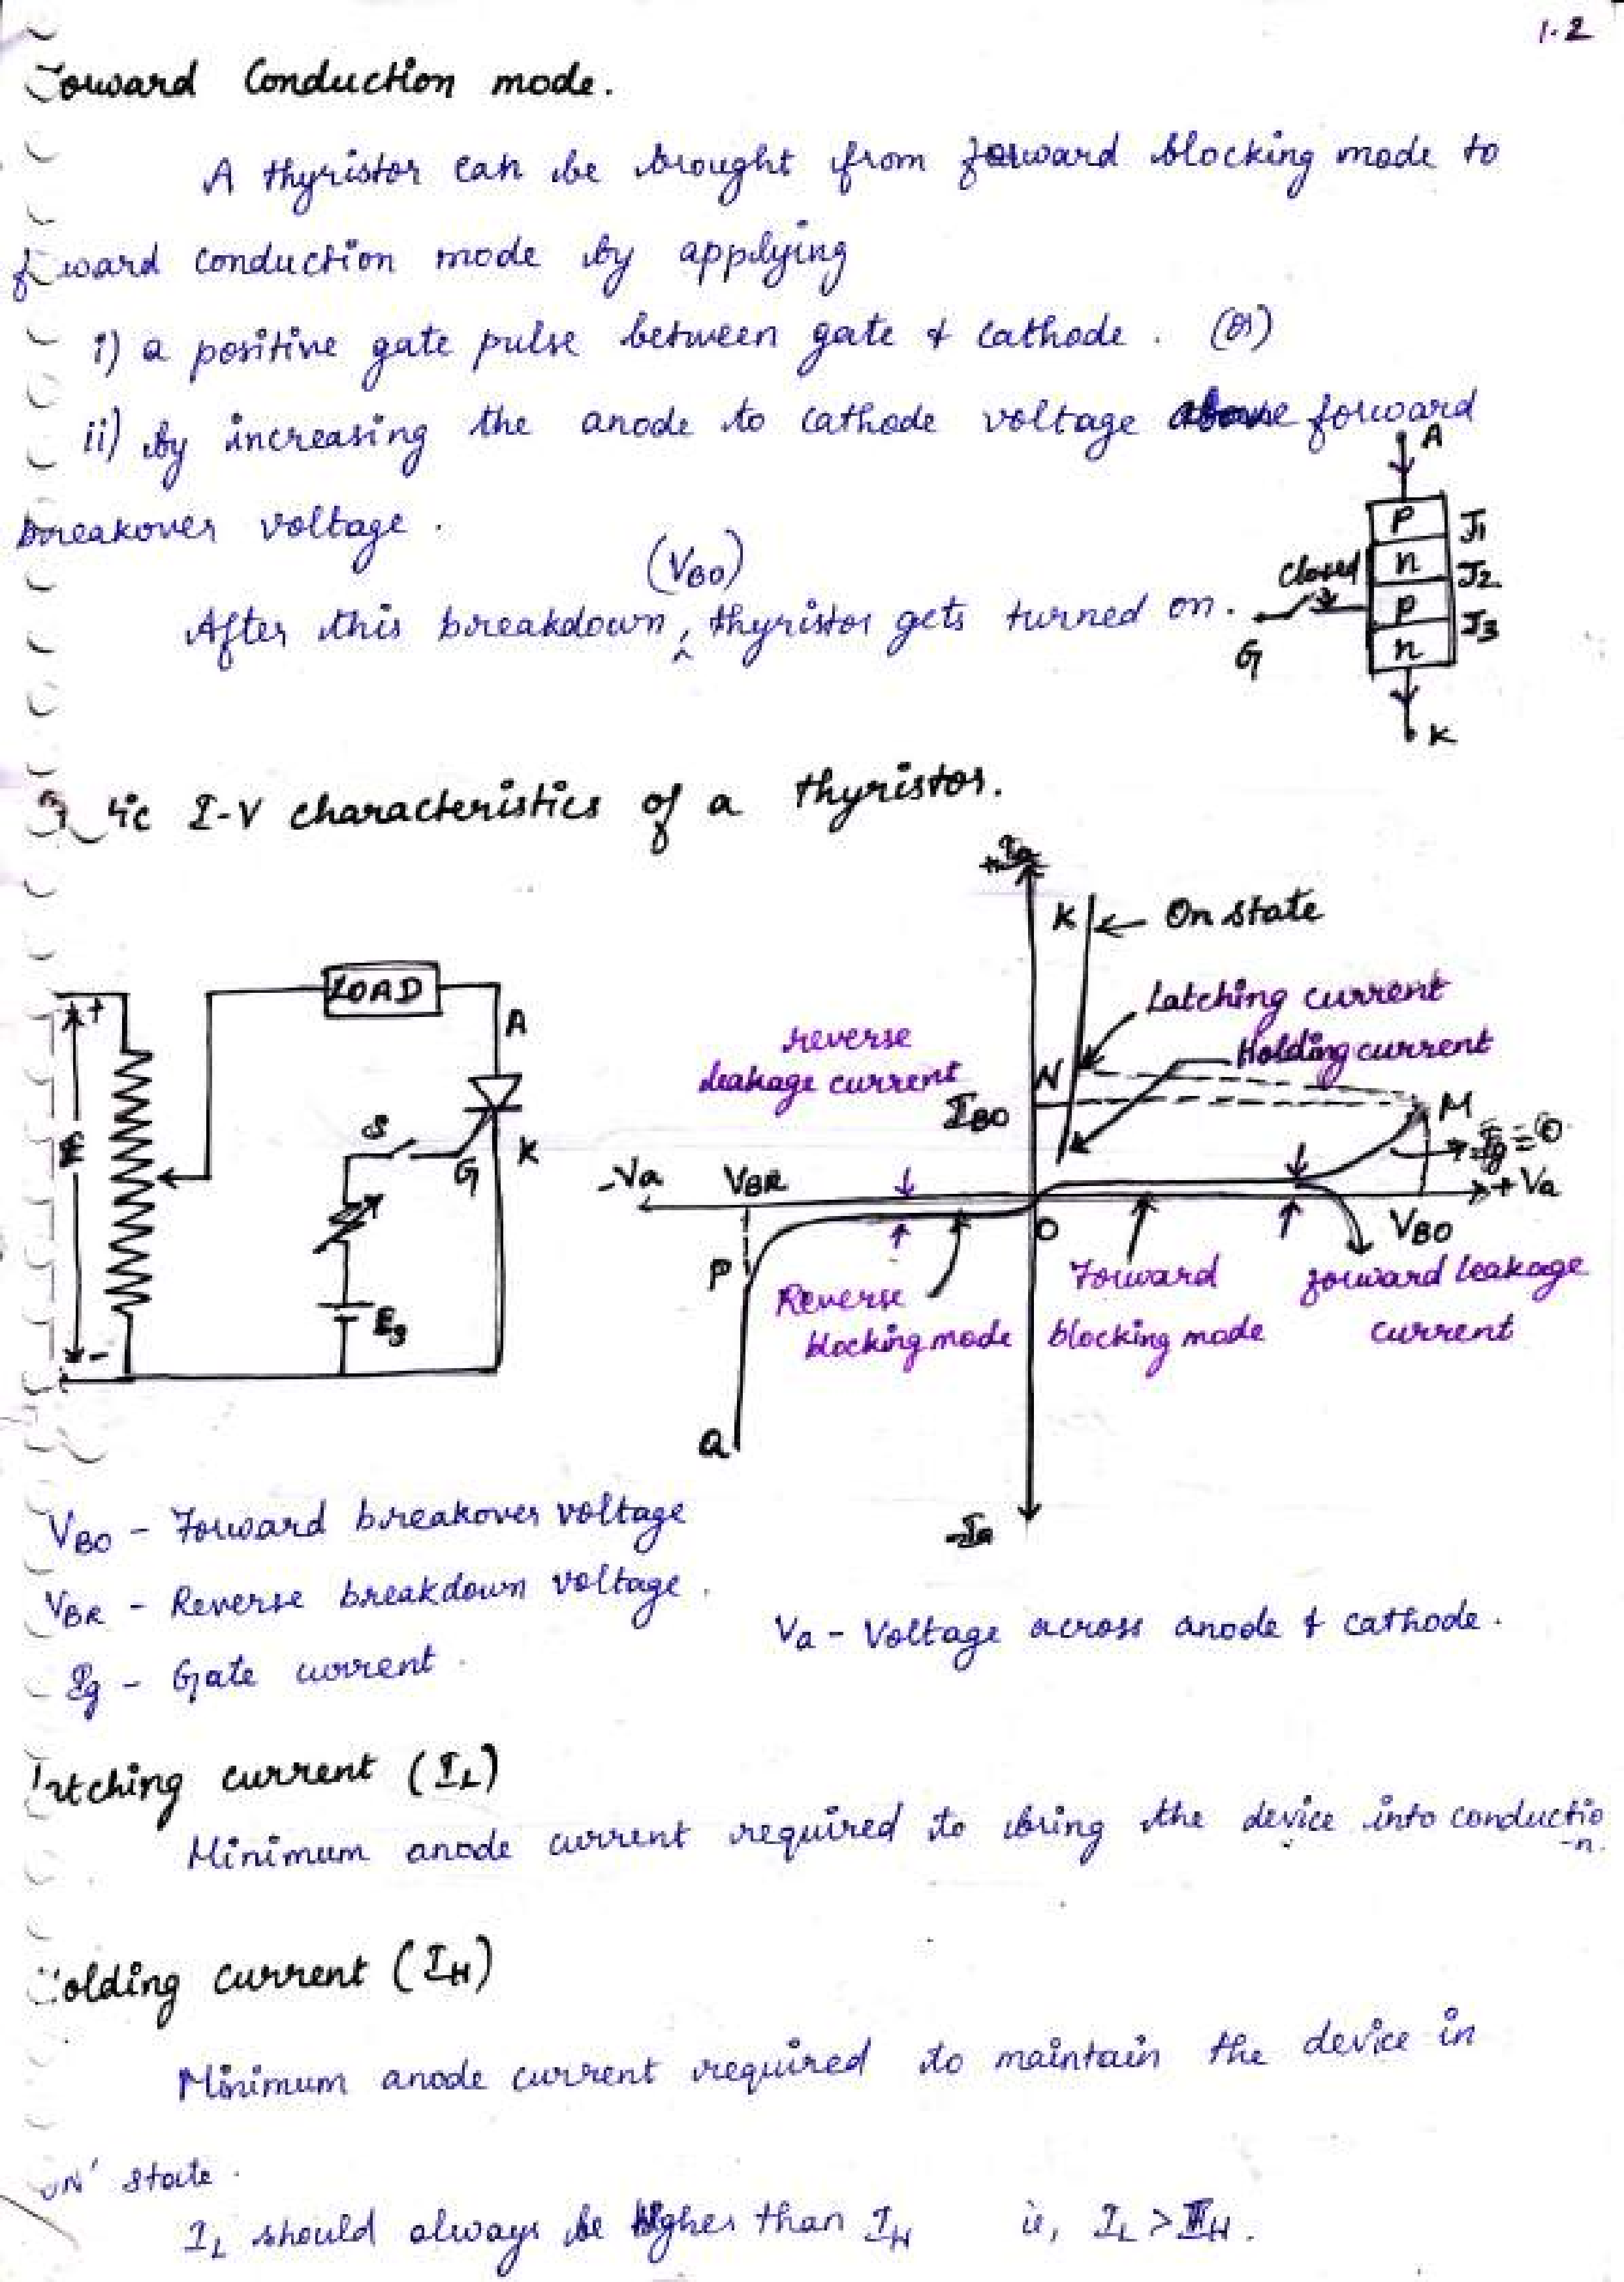 1.2
Forward Conduction mode.
A thyristor can be brought from forward blocking mode to
forward conduction mode by applying
i) a positive gate pulse between gate & cathode. (or)
ii) by increasing the anode to cathode voltage above forward
breakover voltage.
(VBO)
After this breakdown, ^ thyristor gets turned on.
A
P
J1
n
J2
closed
P
J3
n
G
K
Static I-V characteristics of a thyristor.
+Ia
K
On state
LOAD
A
Latching current
Holding current
reverse
leakage current
N
IBO
M
Ig = 0
+
E
-
S
G
K
Eg
-Va
VBR
+Va
O
VBO
P
Reverse
blocking mode
Forward
blocking mode
forward leakage
current
Q
-Ia
VBO - Forward breakover voltage
VBR - Reverse breakdown voltage.
Va - Voltage across anode & cathode.
Ig - Gate current.
Latching current (IL)
Minimum anode current required to bring the device into conductio
-n.
Holding current (IH)
Minimum anode current required to maintain the device in
'ON' state.
IL should always be higher than IH ie, IL > IH.